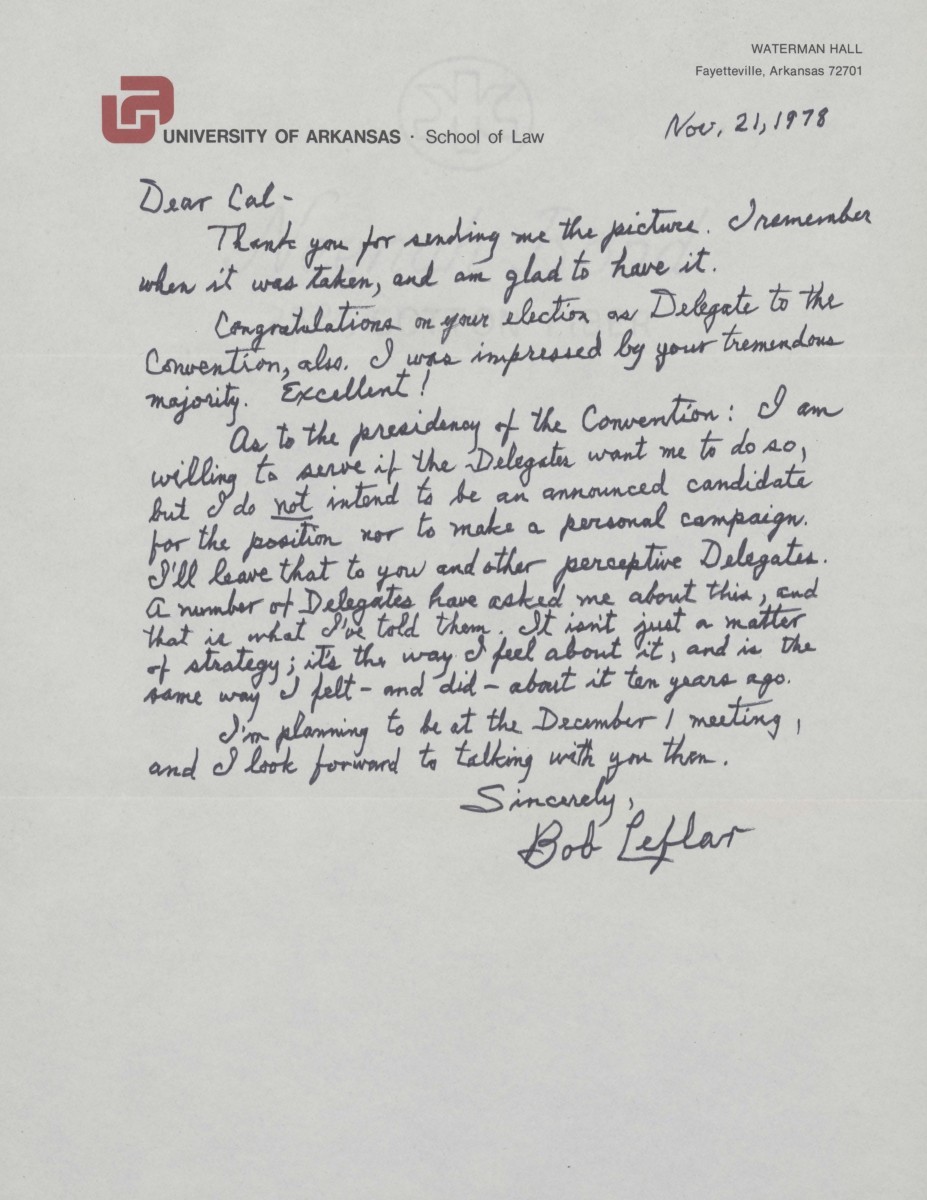 WATERMAN HALL
Fayetteville, Arkansas 72701
UNIVERSITY OF ARKANSAS · School of Law
Nov. 21, 1978
Dear Cal -
Thank you for sending me the picture. I remember
when it was taken, and am glad to have it.
Congratulations on your election as Delegate to the
Convention, also. I was impressed by your tremendous
majority. Excellent!
As to the presidency of the Convention: I am
willing to serve if the Delegates want me to do so,
but I do not intend to be an announced candidate
for the position nor to make a personal campaign.
I'll leave that to you and other perceptive Delegates.
A number of Delegates have asked me about this, and
that is what I've told them. It isn't just a matter
of strategy; it's the way I feel about it, and is the
same way I felt - and did - about it ten years ago.
I'm planning to be at the December 1 meeting,
and I look forward to talking with you then.
Sincerely,
Bob Leflar